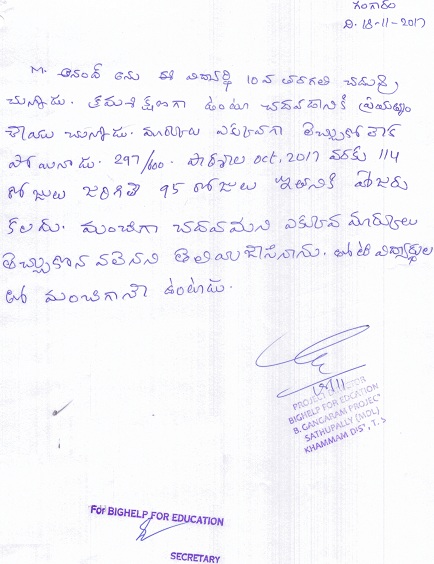 గంగారం
ది. 18-11-2017
M. ఆనంద్ అను ఈ విద్యార్థి 10వ తరగతి చదువు
చున్నాడు. క్రమశిక్షణగా ఉంటూ చదవడానికి ప్రయత్నం
చేయు చున్నాడు. మార్కులు ఎక్కువగా తెచ్చుకోలేక
పోయినాడు. 297/600. పాఠశాల oct, 2017 వరకు 114
రోజులు జరిగితే 95 రోజులు ఇతనికి హాజరు
కలదు. మంచిగా చదవమని ఎక్కువ మార్కులు
తెచ్చుకొన వలెనని తెలియజేసినాను. తోటి విద్యార్థుల
తో మంచిగానే ఉంటాడు.
18/11
PROJECT DIRECTOR
BIGHELP FOR EDCATION
B. GANGARAM PROJECT
SATHUPALLY (MDL)
KHAMMAM DIST, T. S
For BIGHELP FOR EDUCATION
SECRETARY